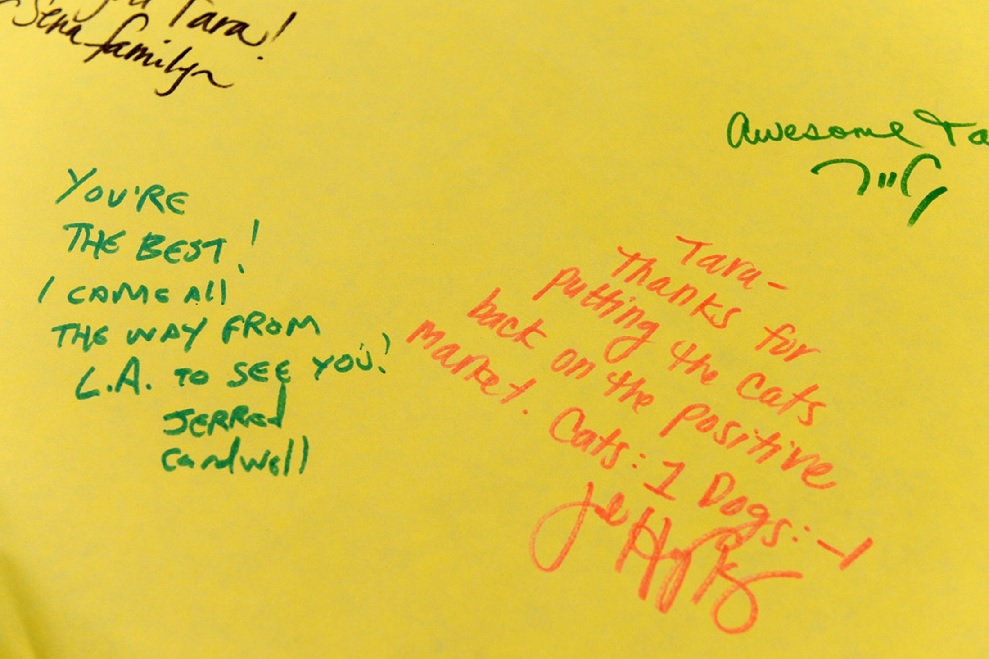 Tara!
Sena family
Awesome Ta
YOU'RE
THE BEST!
I CAME All
THE WAY FROM
L.A. TO SEE YOU!
JERRed
Cardwell
Tara-
Thanks for
putting the cats
back on the positive
market. Cats: 1 Dogs: -1